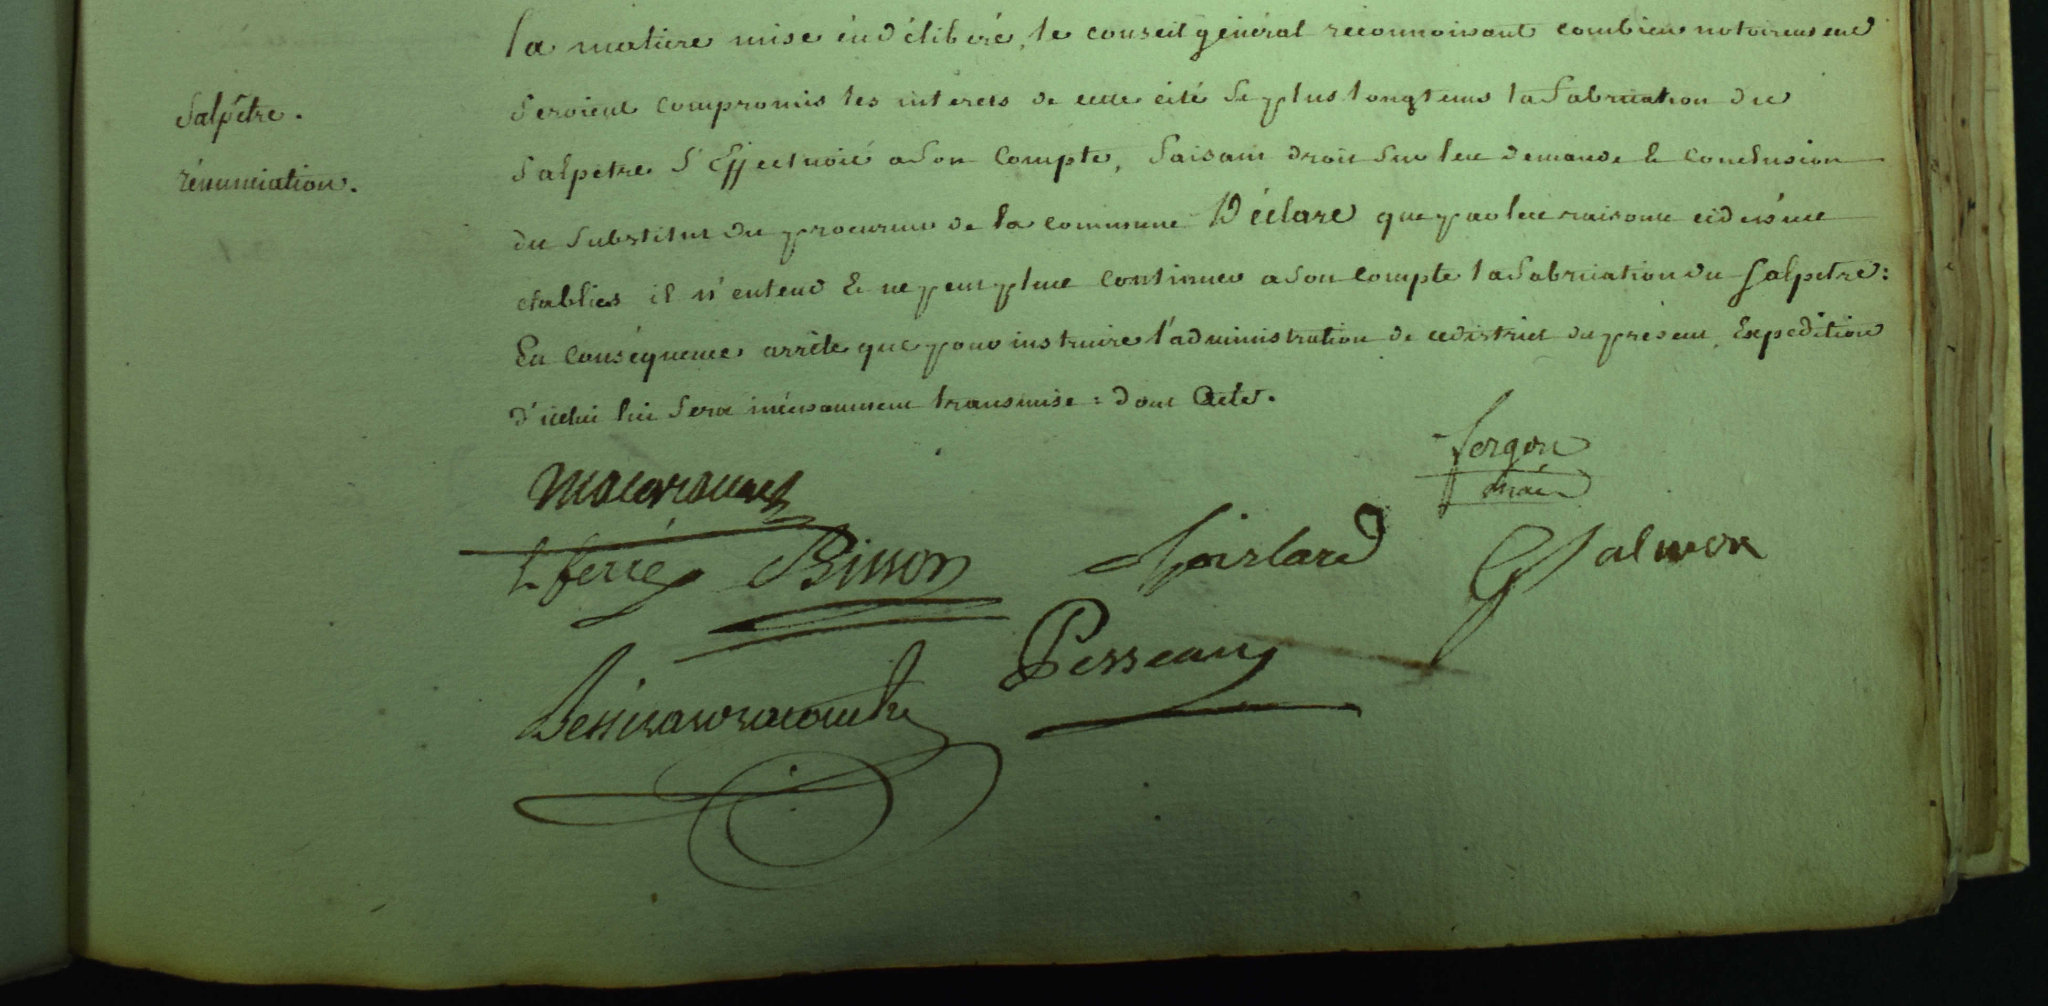 la matiere mise en délibéré, le conseil général reconnoissant combien notoirement
Salpêtre.
seroient compromis les interets de cette cité si plus longtems la fabrication du
salpetre s'Effectuoit a son Compte, faisant droit sur les demande & conclusion
rénunciation.
du substitut du procureur de la commune Déclare que par les raisons ci dessus
etablies il n'entend & ne peut plus continuer a son compte la fabrication du Salpetre:
En conséquence arrête que pour instruire l'administration de ce district du présent, Expedition
d'icelui lui sera incessamment transmise: dont Acte.
fergon
maire
L ferré Bisson Loislard GSalmon
Pesseau